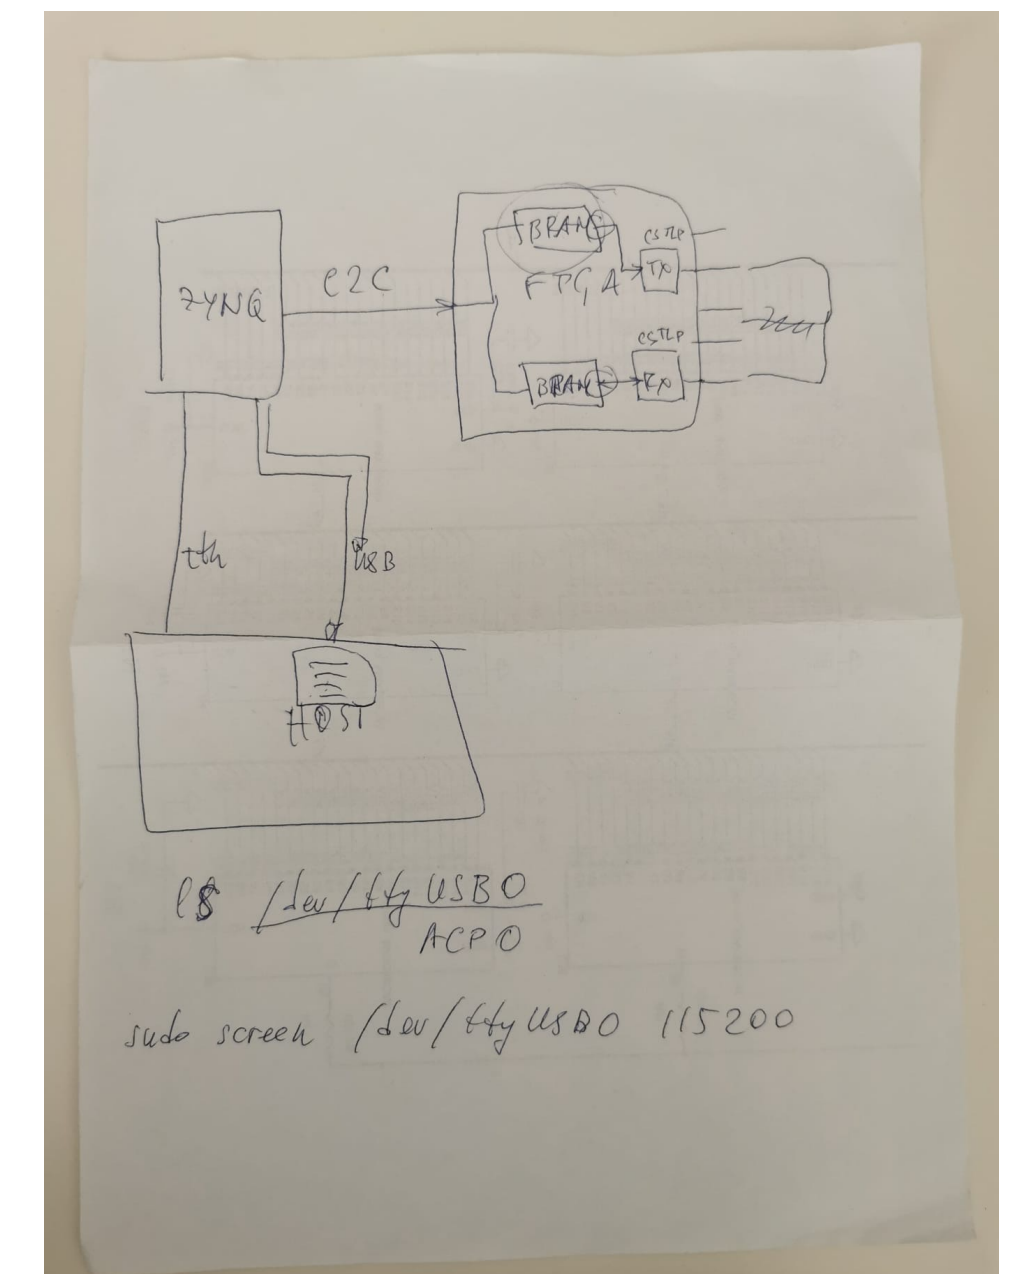 ZYNQ
C2C
BRAM
FPGA
CSTLP
TX
CSTLP
BRAM
RX
eth
USB
HOST
ls /dev/ttyUSB0
ACP0
sudo screen /dev/ttyUSB0 115200